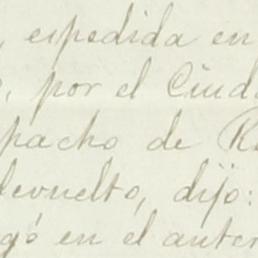 , espedida en
, por el Ciud
pacho de R
devuelto, dijo:
gó en el anter